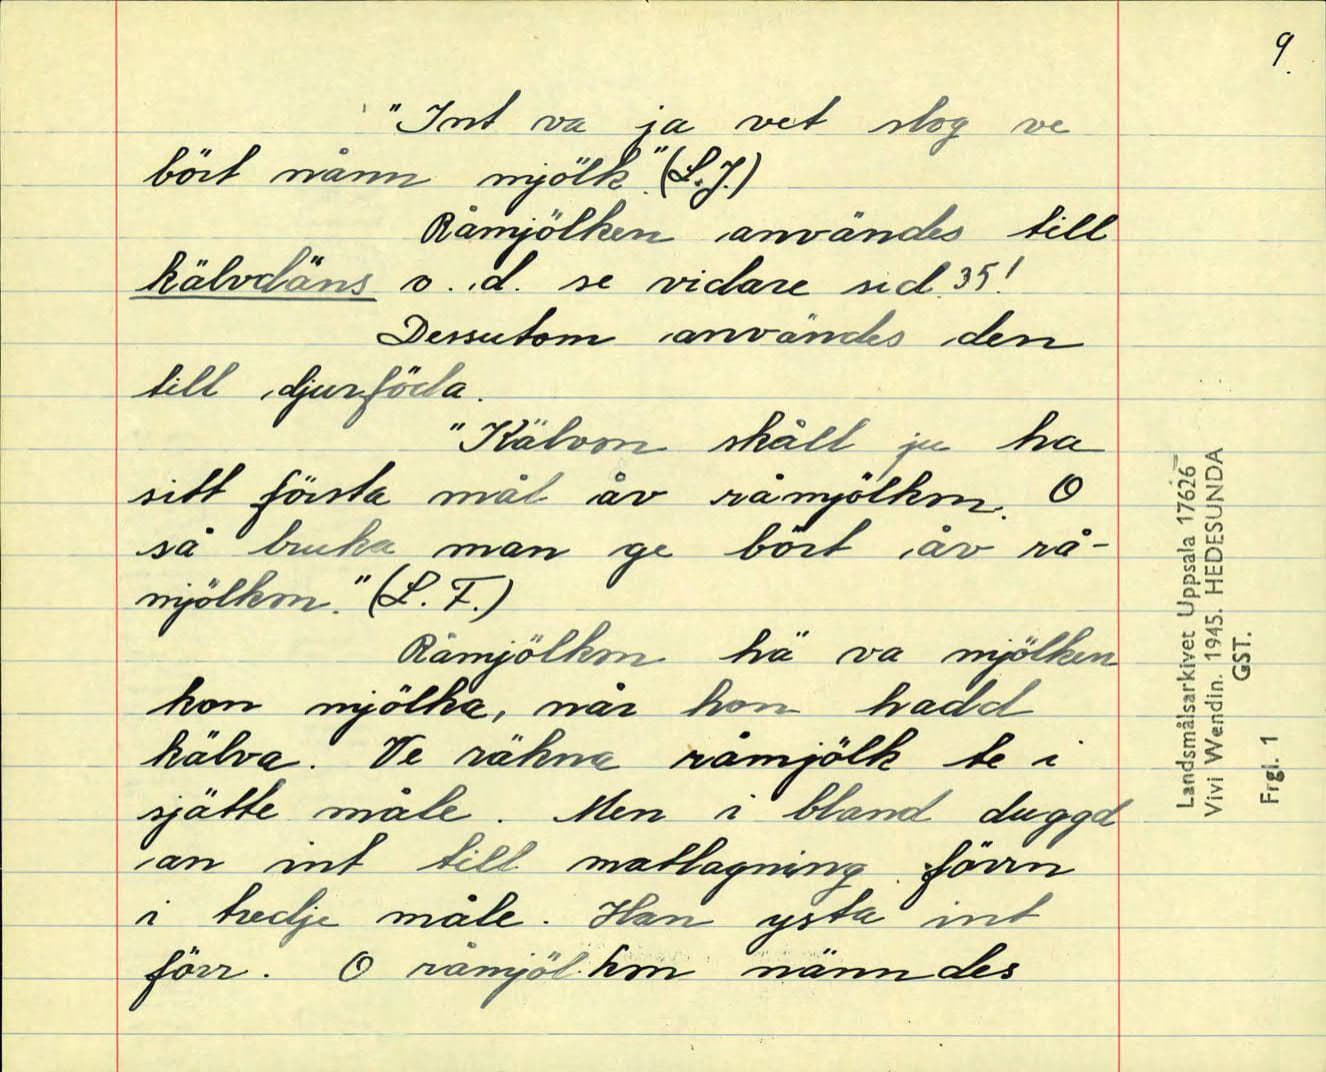 9.
"Int va ja vet slog ve
bört nånn mjölk." (L.J.)
Råmjölken användes till
kälvdäns o.d. se vidare sid. 35!
Dessutom användes den
till djurföda.
"Kälvon skåll ju ha
sitt första mål åv råmjölkm. O
så bruka man ge bört åv rå-
mjölkm." (L. F.)
Råmjölkm hä va mjölken
hon mjölka, når hon hadd
kälva. Ve räkna råmjölk te i
sjätte måle. Men i bland duggd
an int till matlagning förrn
i tredje måle. Han ysta int
förr. O råmjölkm nämndes
Landsmålsarkivet Uppsala 17626
Vivi Wendin. 1945. HEDESUNDA
GST.
Frgl. 1